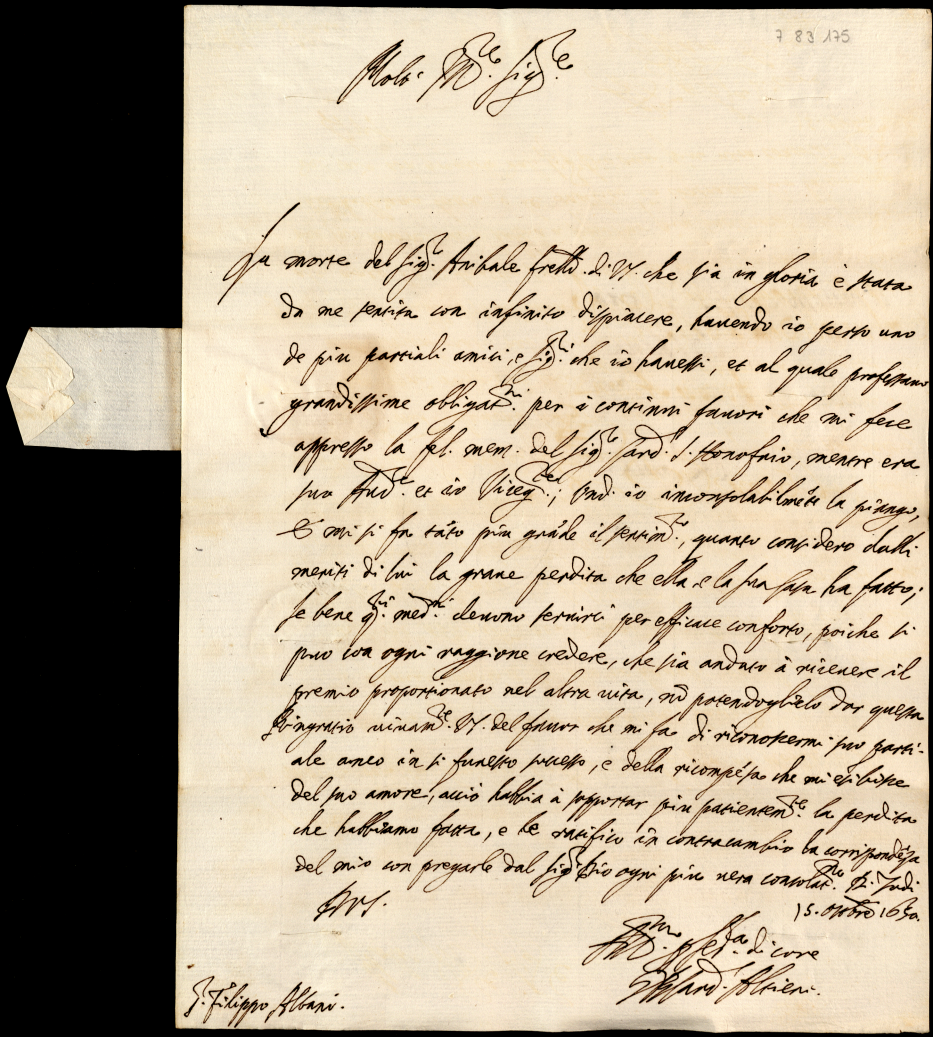 7 83 175
Molt' Ill.re Sig.re
La morte del Sig.re Anibale fretllo di V.S. che sia in gloria è stata
da me sentita con infinito dispiacere, hauendo io perso uno
de piu partiali amici, e Sig.ri che io hauessi, et al quale professauo
grandissime obligat.ni per i continui fauori che mi fece
appresso la fel. mem. del Sig.re Card.l S. Honofrio, mentre era
suo Aud.re et io Viceg.te; Ond' io inconsolabilmẽte la piango,
E mi si fa tãto piu grãde il sentim.to, quanto considero dalli
meriti di lui la graue perdita che ella e la sua casa ha fatto;
se bene q.ti med.mi deuono seruirci per efficace conforto, poiche si
puo con ogni raggione credere, che sia andato à riceuere il
premio proportionato nel altra uita, nõ potendoglielo dar questa
Ringratio uiuam.te V.S. del fauor che mi fa di riconoscermi suo parti-
ale anco in si funesto successo, e della ricompẽsa che mi esibisce
del suo amore, acciò habbia à sopportar piu patientem.te la perdita
che habbiamo fatta, e le ratifico in contracambio la corrispondẽza
del mio con pregarle dal Sig.re Dio ogni piu uera consolat.ne Di Todi
15. ottobre 1650.
D V.S.
Aff.mo per ser.la di core
Altieri.
S. Filippo Albani.